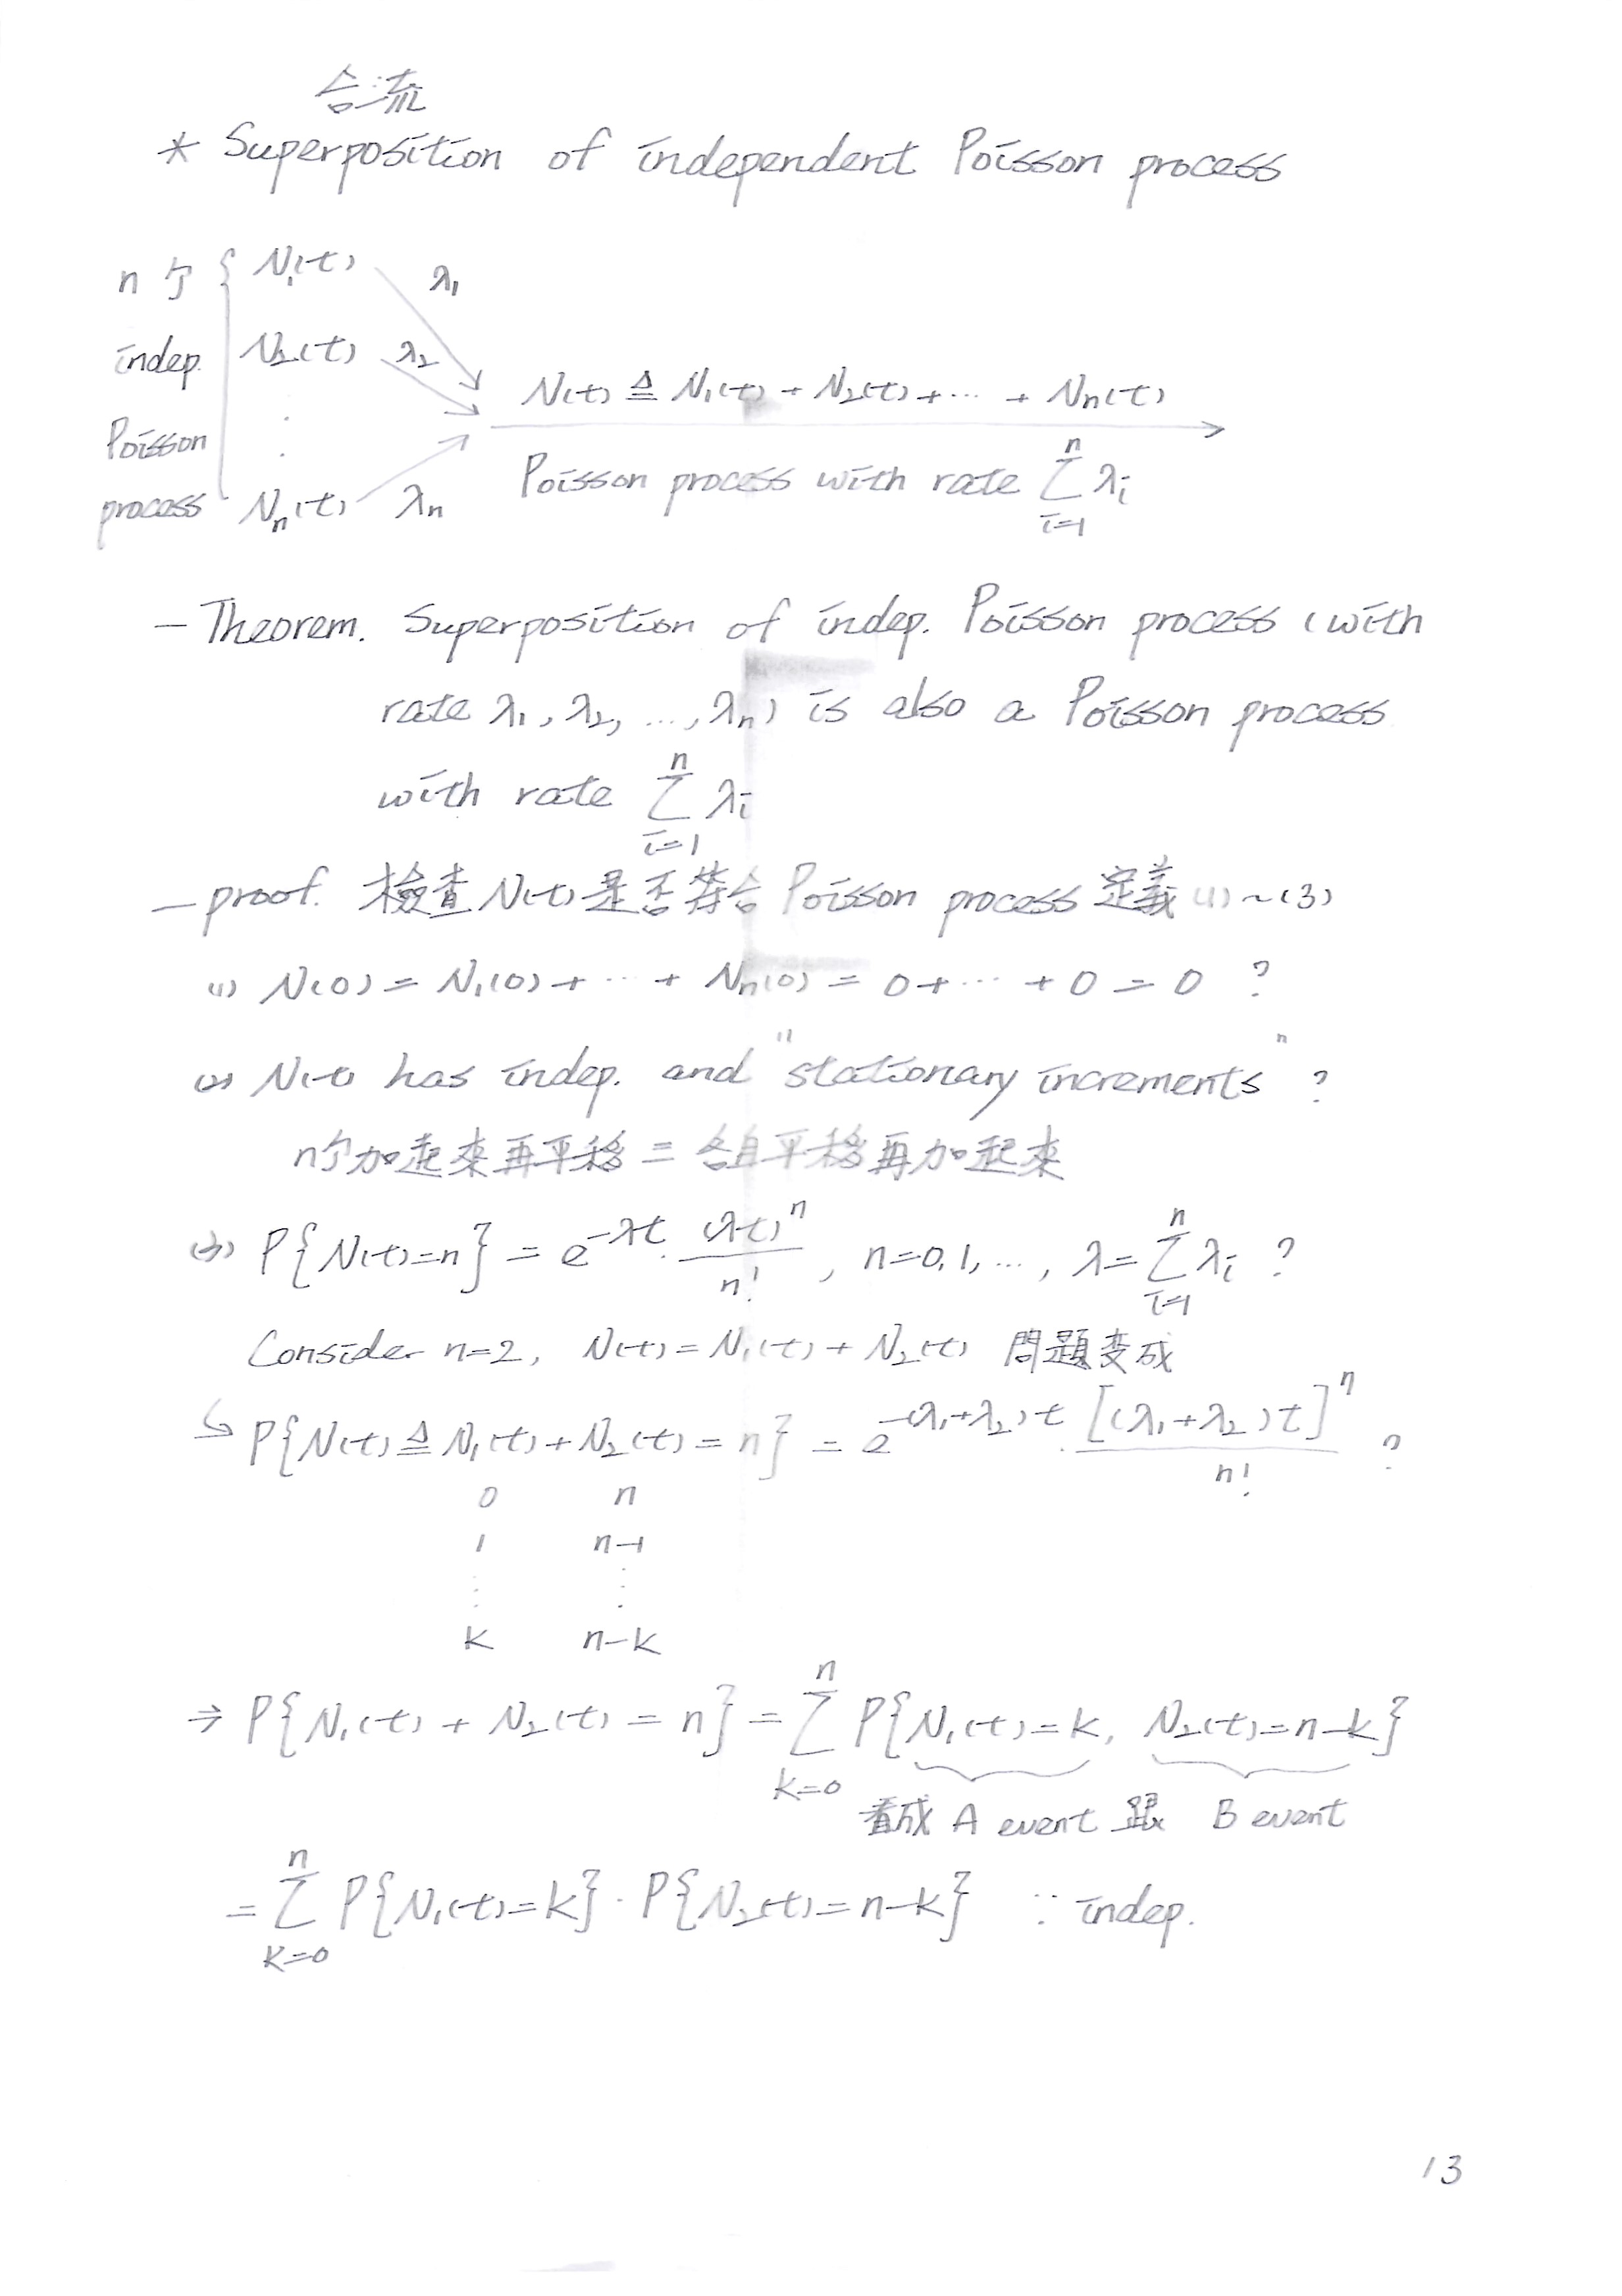 合流
* Superposition of independent Poisson process
n 个 { N₁(t) λ₁
indep. N₂(t) λ₂
N(t) ≜ N₁(t) + N₂(t) + ⋯ + Nₙ(t)
Poisson ⋮
Poisson process with rate ∑_{i=1}^{n} λᵢ
process Nₙ(t) λₙ
— Theorem. Superposition of indep. Poisson process (with
rate λ₁, λ₂, …, λₙ) is also a Poisson process
with rate ∑_{i=1}^{n} λᵢ
— proof. 檢查 N(t) 是否符合 Poisson process 定義 (1) ~ (3)
(1) N(0) = N₁(0) + ⋯ + Nₙ(0) = 0 + ⋯ + 0 = 0 ?
(2) N(t) has indep. and "stationary increments" ?
n个加起來再平移 = 各自平移再加起來
(3) P{N(t)=n} = e^{-λt} · (λt)^n / n! , n=0,1,…, λ = ∑_{i=1}^{n} λᵢ ?
Consider n=2, N(t) = N₁(t) + N₂(t) 問題变成
↳ P{N(t) ≜ N₁(t) + N₂(t) = n} = e^{-(λ₁+λ₂)t} · [(λ₁+λ₂)t]^n / n! ?
0 n
1 n-1
⋮ ⋮
k n-k
⇒ P{N₁(t) + N₂(t) = n} = ∑_{k=0}^{n} P{N₁(t)=k, N₂(t)=n-k}
看成 A event 跟 B event
= ∑_{k=0}^{n} P{N₁(t)=k} · P{N₂(t)=n-k} ∵ indep.
13